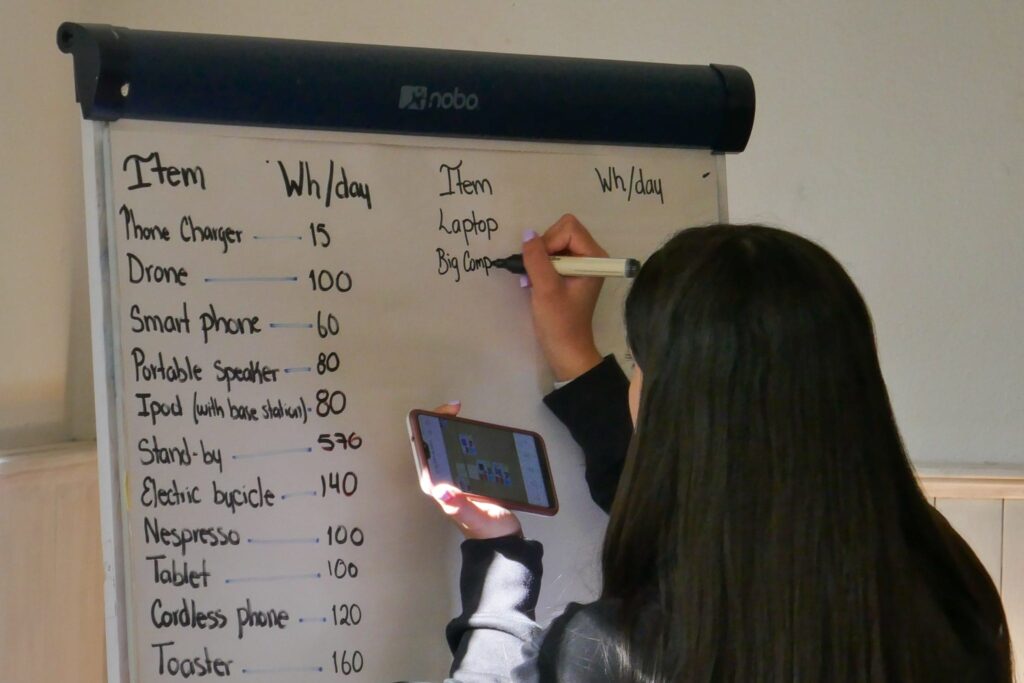 nobo
Item Wh/day
Phone Charger 15
Drone 100
Smart phone 60
Portable Speaker 80
Ipod (with base station) 80
Stand-by 576
Electric bycicle 140
Nespresso 100
Tablet 100
Cordless phone 120
Toaster 160
Item Wh/day
Laptop
Big Comp